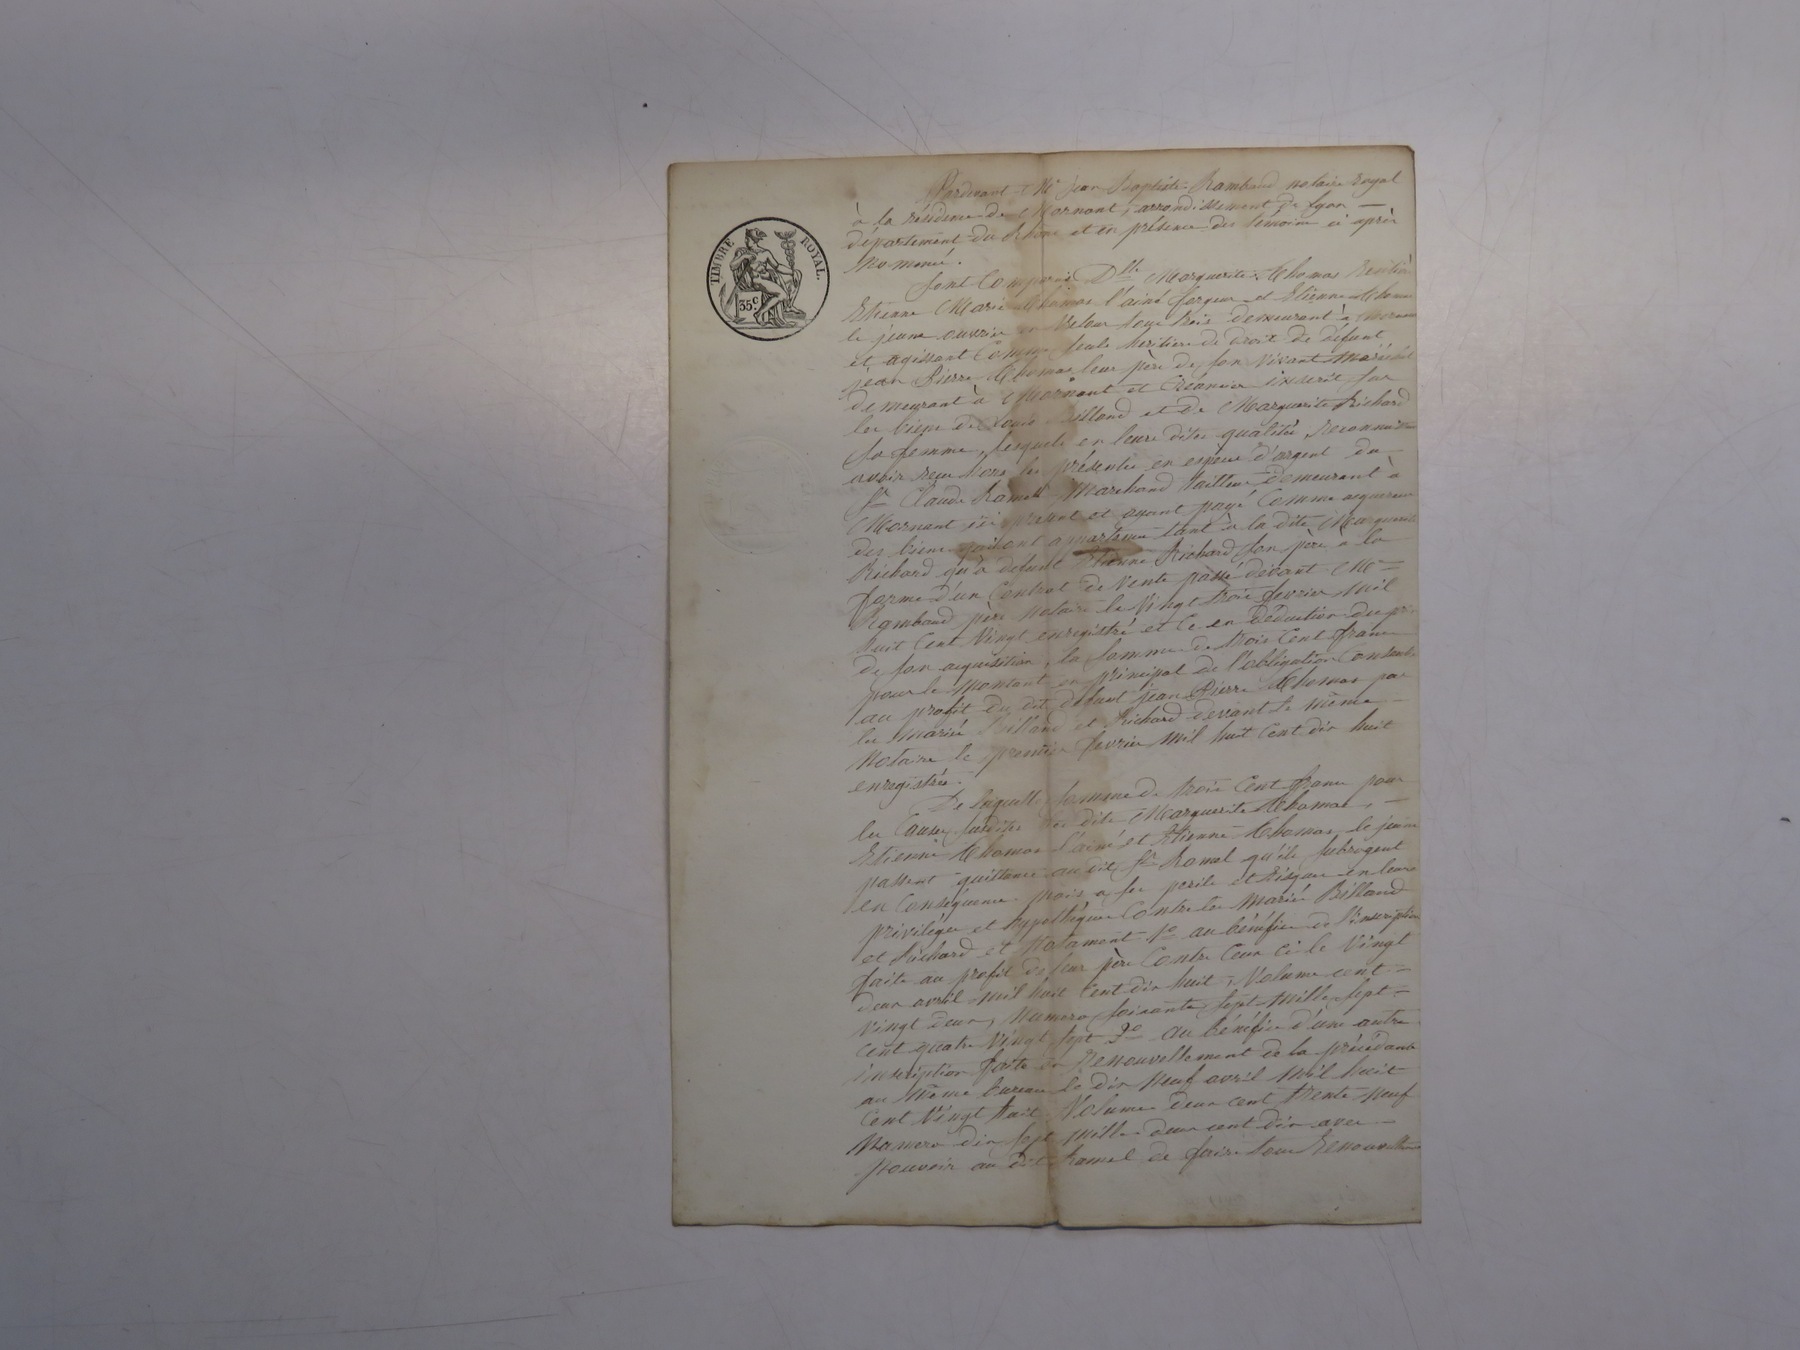 TIMBRE ROYAL.
35c
Pardevant Me Jean Baptiste Rambaud notaire royal
à la résidence de Mornant, arrondissement de Lyon —
département du Rhône et en présence des témoins ci après
Nommés.
Sont Comparus Dlle Marguerite Thomas Rentière
Etienne Marie Thomas l'ainé forgeur et Etienne Thomas
le jeune ouvrier en Velour tous trois demeurant à Mornant
et agissant Comme seuls héritiers de droit de défunt
Jean Pierre Thomas leur père de son vivant Maréchal
demeurant à Mornant et Créancier inscrit sur
les biens de Louis Billand et de Marguerite Richard
sa femme, lesquels en leurs dites qualités, Reconnaissent
avoir reçu lors des présentes en espèces d'argent du
Sr Claude Ramel Marchand tailleur demeurant à
Mornant ici présent et ayant payé Comme acquéreur
des biens qui ont appartenu tant à la dite Marguerite
Richard qu'à défunt Etienne Richard son père à la
forme d'un Contrat de Vente passé devant Me —
Rambaud père Notaire le Vingt trois fevrier Mil
huit Cent Vingt enregistré et Ce en déduction du prix
de son acquisition, la somme de trois Cent francs
pour le Montant en principal de l'obligation Consentie
au profit du dit défunt Jean Pierre Thomas par
les Mariés Billand et Richard devant le même —
Notaire le premier fevrier Mil huit Cent dix huit
enregistrée.
De laquelle somme de trois Cent francs pour
les Causes susdites les dits Marguerite Thomas, —
Etienne Thomas l'ainé et Etienne Thomas le jeune
passent quittance au dit Sr Ramel qu'ils subrogent
en Conséquence mais à ses perils et Risques en leurs
privilèges et hypothèques Contre les Mariés Billand
et Richard et Notament 1o au bénéfice de l'inscription
faite au profit de leur père Contre Ceux ci le Vingt
deux avril Mil huit Cent dix huit, Volume cent —
Vingt deux, Numero soixante sept Mille sept —
cent quatre Vingt sept 2o au bénéfice d'une autre
inscription faite en Renouvellement de la précédante
au Même bureau le dix Neuf avril Mil huit
Cent Vingt huit Volume deux cent trente Neuf
Numero dix sept Mille deux cent dix avec —
pouvoir au dit Ramel de faire tous